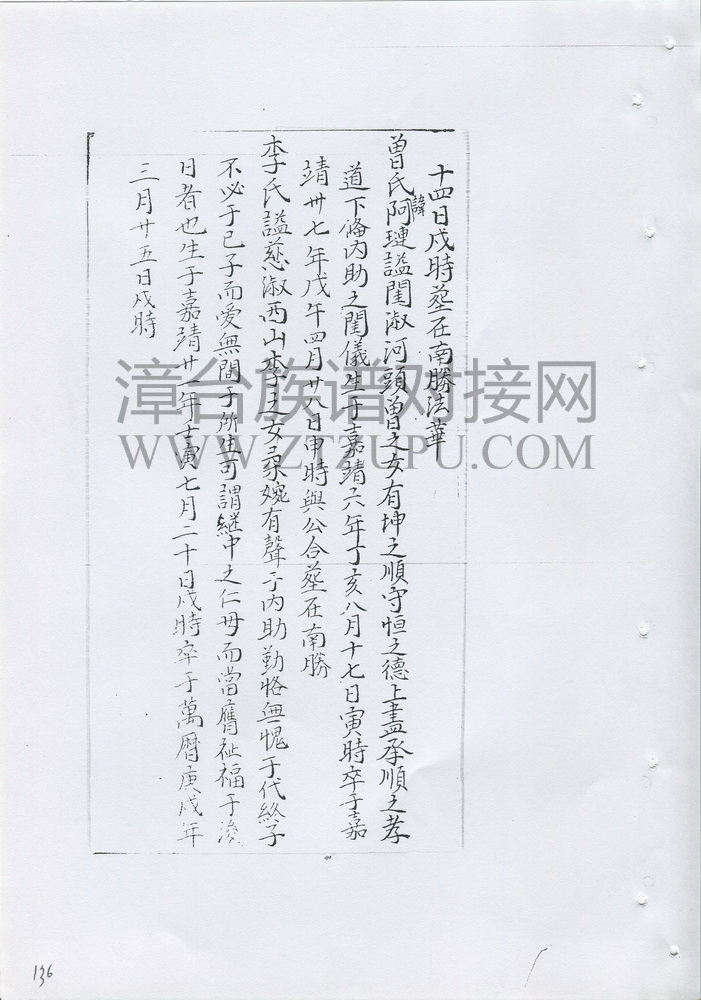 十四日戌時墓在南勝法華
曾氏諱阿璉謚閨淑河頭曾之女有坤之順守恒之德上盡承順之孝
道下脩內助之閨儀生于嘉靖六年丁亥八月十七日寅時卒于嘉
靖卅七年戊午四月廿八日申時與公合墓在南勝
李氏謚慈淑西山李之女柔婉有聲于內助勤恪無愧于代終子
不必于己子而愛無間于所生可謂継中之仁母而當膺祉福于後
日者也生于嘉靖廿一年壬寅七月二十日戌時卒于萬曆庚戌年
三月廿五日戌時
漳台族谱对接网
WWW.ZTZUPU.COM
136